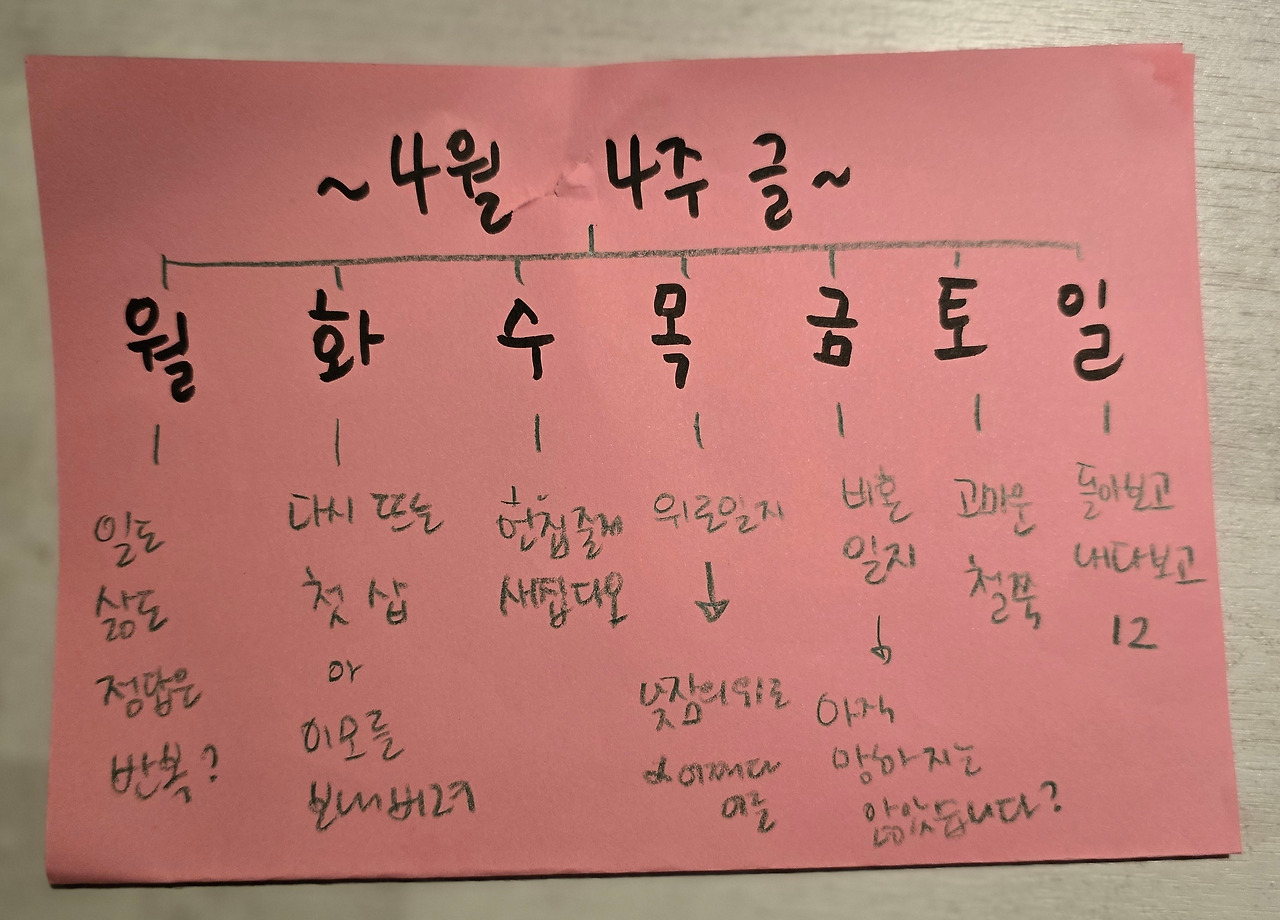 ~4월 4주 글~
월 화 수 목 금 토 일
일도
삶도
정답은
반복?
다시 뜨는
첫 삽
아
이모를
보내버려
헌집줄게
새집다오
위로일지
↓
낮잠의위로
어쩌다
이들
비혼
일지
↓
아직
망하지는
않았습니다?
고마운
철쭉
돌아보고
내다보고
12